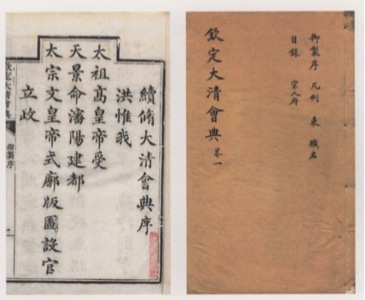 續脩大清會典序
洪惟我
太祖高皇帝受
天景命瀋陽建都
太宗文皇帝式廓版圖設官
立政
欽定大清會典 卷一
御製序 凡例 表 職名
目錄 宗人府